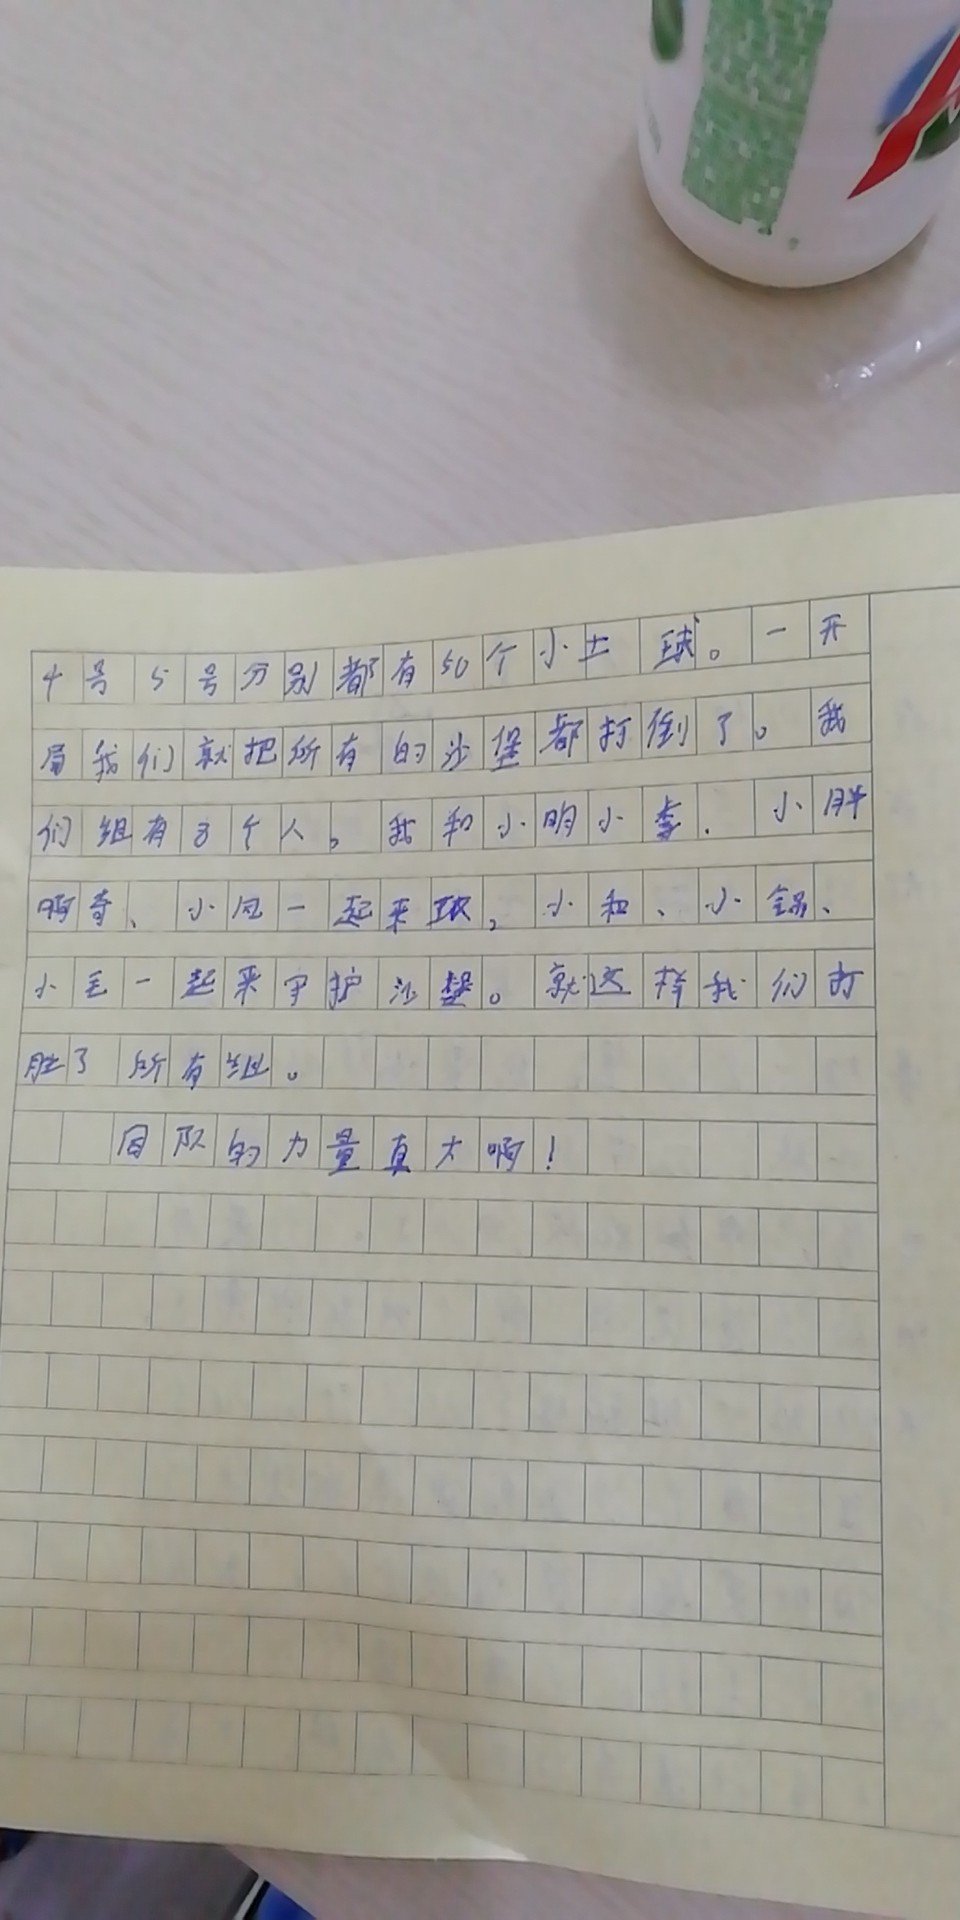 4号5号分别都有50个小土球。一开
局我们就把所有的沙堡都打倒了。我
们组有8个人。我和小明小李.小胖
啊奇、小凤一起来攻,小和、小锅、
小毛一起来守护沙堡。就这样我们打
胜了所有组。
团队的力量真大啊!